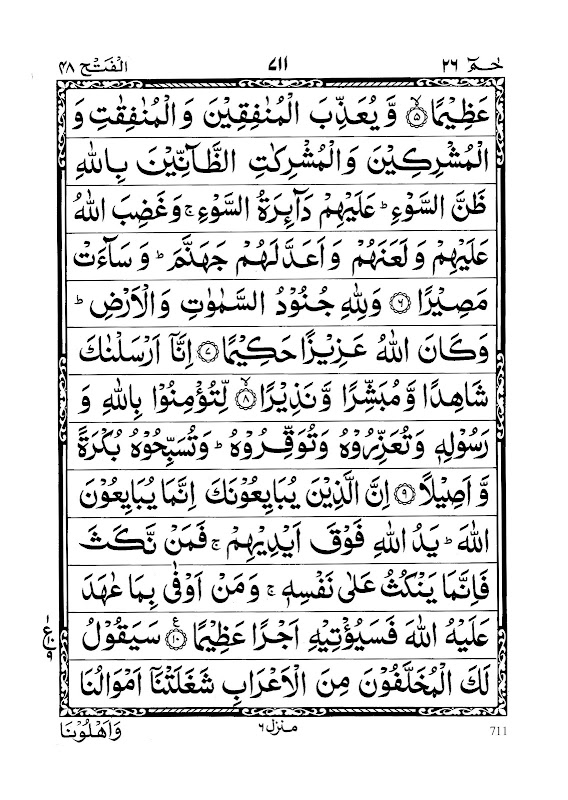 الفتح ٤٨ ٧١١ حٰمٓ ٢٦
عَظِيْمًا ۙ﴿۵﴾ وَّ يُعَذِّبَ الْمُنٰفِقِيْنَ وَ الْمُنٰفِقٰتِ وَ
الْمُشْرِكِيْنَ وَ الْمُشْرِكٰتِ الظَّآنِّيْنَ بِاللّٰهِ
ظَنَّ السَّوْءِ ؕ عَلَيْهِمْ دَآىِٕرَةُ السَّوْءِ ۚ وَ غَضِبَ اللّٰهُ
عَلَيْهِمْ وَ لَعَنَهُمْ وَ اَعَدَّ لَهُمْ جَهَنَّمَ ؕ وَ سَآءَتْ
مَصِيْرًا ﴿۶﴾ وَ لِلّٰهِ جُنُوْدُ السَّمٰوٰتِ وَ الْاَرْضِ ؕ
وَ كَانَ اللّٰهُ عَزِيْزًا حَكِيْمًا ﴿۷﴾ اِنَّاۤ اَرْسَلْنٰكَ
شَاهِدًا وَّ مُبَشِّرًا وَّ نَذِيْرًا ۙ﴿۸﴾ لِّتُؤْمِنُوْا بِاللّٰهِ وَ
رَسُوْلِهٖ وَ تُعَزِّرُوْهُ وَ تُوَقِّرُوْهُ ؕ وَ تُسَبِّحُوْهُ بُكْرَةً
وَّ اَصِيْلًا ﴿۹﴾ اِنَّ الَّذِيْنَ يُبَايِعُوْنَكَ اِنَّمَا يُبَايِعُوْنَ
اللّٰهَ ؕ يَدُ اللّٰهِ فَوْقَ اَيْدِيْهِمْ ۚ فَمَنْ نَّكَثَ
فَاِنَّمَا يَنْكُثُ عَلٰى نَفْسِهٖ ۚ وَ مَنْ اَوْفٰى بِمَا عٰهَدَ
عَلَيْهُ اللّٰهَ فَسَيُؤْتِيْهِ اَجْرًا عَظِيْمًا ﴿۱۰﴾ سَيَقُوْلُ
لَكَ الْمُخَلَّفُوْنَ مِنَ الْاَعْرَابِ شَغَلَتْنَاۤ اَمْوَالُنَا
وَ اَهْلُوْنَا منزل ۶ 711